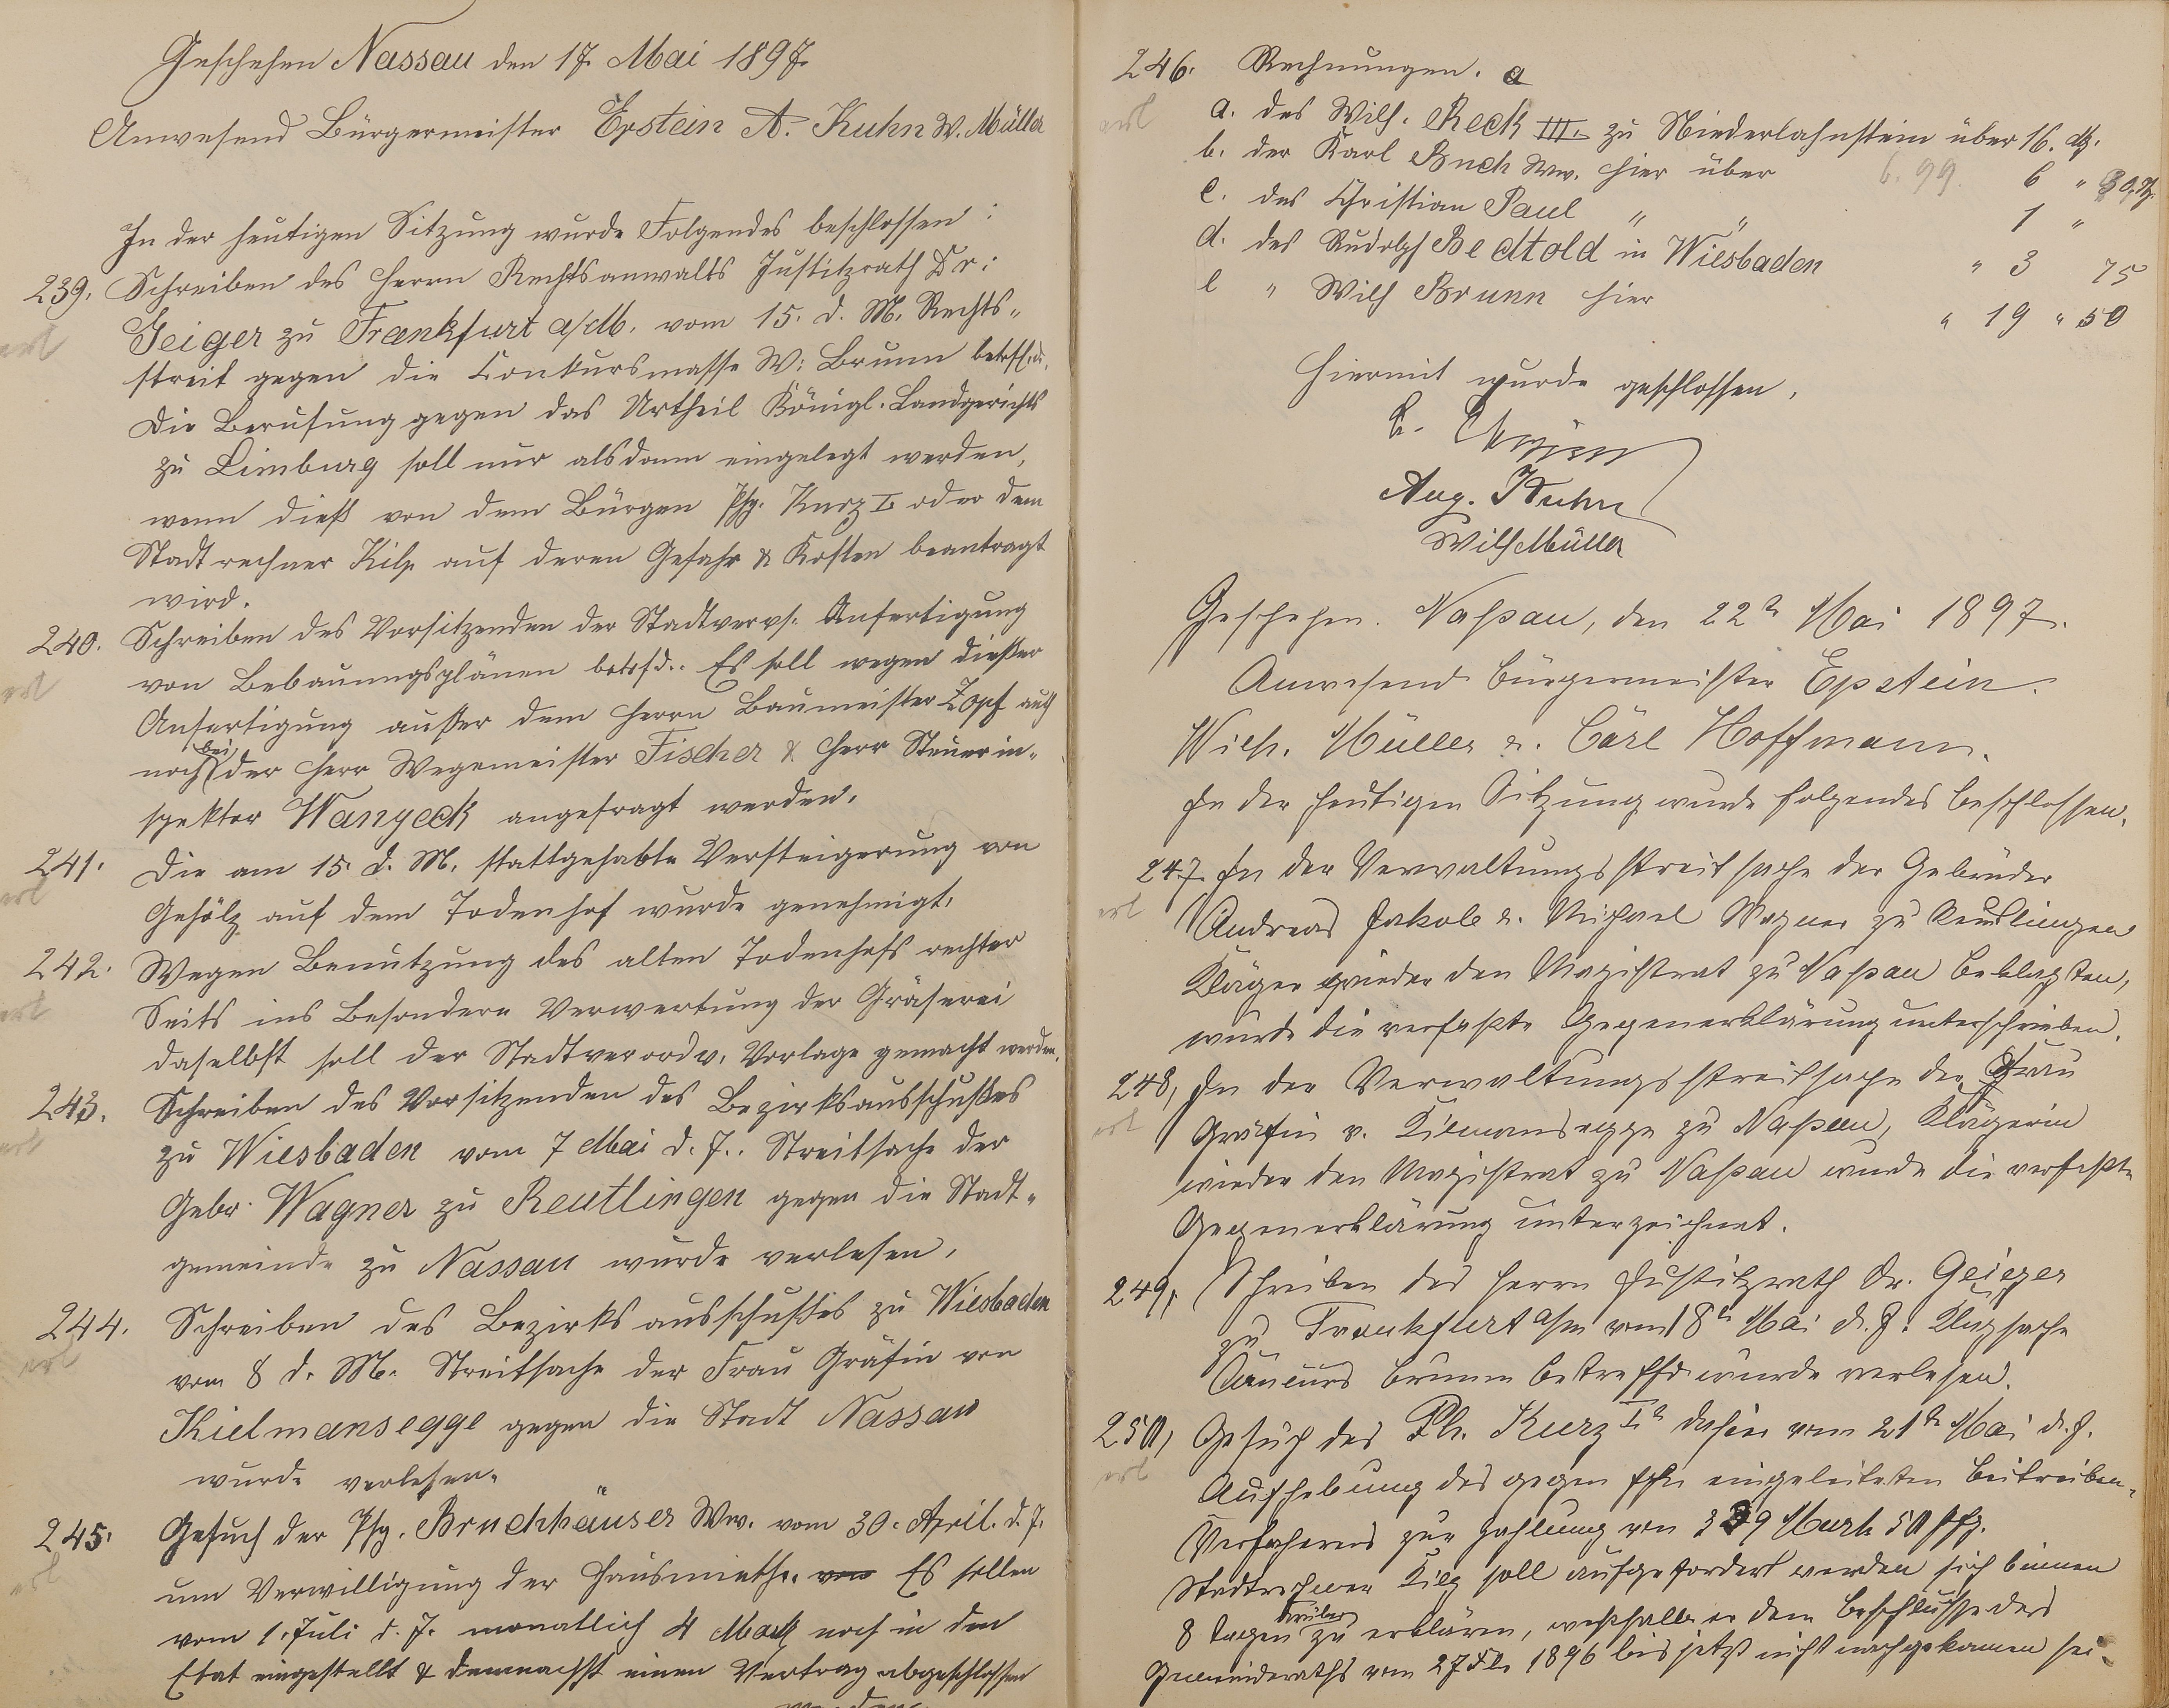 Geschehen Nassau den 17. Mai 1897.
Anwesend Bürgermeister Epstein A. Kuhn W. Müller
In der heutigen Sitzung wurde Folgendes beschlossen:
239. Schreiben des Herrn Rechtsanwalts Justitzrath Dr:
Geiger zu Frankfurt a/M. vom 15. d. M. Rechts-
streit gegen die Konkursmasse W: Brunn betrffd.
Die Berufung gegen das Urtheil Königl. Landgerichts
zu Limburg soll nur alsdann eingelegt werden,
wenn dieß von dem Bürgen Ph. Kurz I oder dem
Stadtrechner Kilp auf deren Gefahr & Kosten beantragt
wird.
240. Schreiben des Vorsitzenden der Stadtverws. Anfertigung
von Bebauungsplänen betrfd.. Es soll wegen dießer
Anfertigung außer dem Herrn Baumeister Zopf auch
noch bei der Herr Wegemeister Fischer & Herr Steuerin-
spektor Wanyeck angefragt werden.
241. Die am 15. d. M. stattgehabte Versteigerung von
Gehölz auf dem Todenhof wurde genehmigt.
242. Wegen Benutzung des alten Todenhofs rechter
Seits ins Besondere Verwertung der Gräserei
daselbst soll der Stadtverordv. Vorlage gemacht werden.
243. Schreiben des Vorsitzenden des Bezirksausschußes
zu Wiesbaden vom 7 Mai d. J.. Streitsache der
Gebr. Wagner zu Reutlingen gegen die Stadt-
gemeinde zu Nassau wurde verlesen.
244. Schreiben des Bezirksausschußes zu Wiesbaden
vom 8 d. M. Streitsache der Frau Gräfin von
Kielmansegge gegen die Stadt Nassau
wurde verlesen.
245. Gesuch der Ph. Bruchhäuser Ww. vom 30. April. d. J.
um Verwilligung der Hausmiethe. von Es sollen
vom 1. Juli d. J. monatlich 4 Mark noch in den
Etat eingestellt & demnachst einen Vertrag abgeschlossen
werden.
246. Rechnungen. a
erl
a. des Wilh. Reck III. zu Niederlahnstein über 16. M.
b. der Karl Buch Ww. hier über 6. 99. 6 " 30 Pf.
c. des Christian Paul " " 1 "
d. des Rudolph Bechtold in Wiesbaden " 3 75
e " Wilh Brunn hier " 19 " 50
Hiermit wurde geschlossen.
Aug. Kuhn
Wilh Müller
Geschehen. Naßau, den 22n Mai 1897.
Anwesend Bürgermeister Epstein.
Wilh. Müller u. Carl Hoffmann.
In der heutigen Sitzung wurde folgendes beschlossen.
247. In der Verwaltungsstreitsache der Gebrüder
erl
Andreas Jakob u. Michael Wagner zu Reutlingen
Kläger wieder den Magistrat zu Naßau Beklagten,
wurde die verfaßte Gegenerklärung unterschrieben.
248, In der Verwaltungsstreitsache der Frau
erl
Gräfin v. Kilmansegge zu Naßau, Klägerin
wieder den Magistrat zu Naßau wurde die verfaßte
Gegenerklärung unterzeichnet.
249, Schreiben des Herrn Justitzrath Dr. Geieger
zu Frankfurt a/m vom 18n Mai d. J. Klagsache
Concurs Brunn betreffd wurde verlesen.
250, Gesuch des Ph. Kurz In dahier vom 21n Mai d. J.
erl
Aufhebung des gegen Ihn eingeleiteten Beitreiben-
Verfahrens zur Zahlung von 339 Mark 50 Pfg.
Stadtrechner Kilp soll aufgefordert werden sich binnen
8 Tagen darüber zu erklären, weßhalb er dem Beschlusse des
Gemeinderaths vom 27 1896 bis jetzt nicht nachgekomen sei.